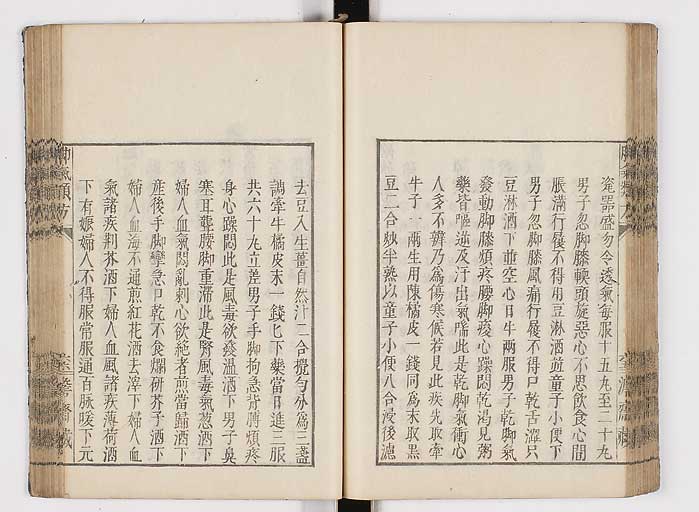 瓷器盛勿令透氣每服十五丸至二十丸
男子忽脚膝軟頭旋惡心不思飲食心間
脹滿行履不得用豆淋酒並童子小便下
男子忽脚膝風痛行履不得口乾舌澀只
豆淋酒下並空心日午兩服男子乾脚氣
發動脚膝煩疼腰脚酸心躁悶乾渴見粥
藥皆嘔逆及汗出氣喘此是乾脚氣衝心
人多不辨乃爲傷寒候若見此疾先取牽
牛子一兩生用陳橘皮一錢同爲末取黑
豆二合炒半熟以童子小便八合浸後濾
去豆入生薑自然汁二合攪勻分爲三盞
調牽牛橘皮末一錢匕下藥當日進三服
共六十丸立差男子手脚拘急背膊煩疼
身心躁悶此是風毒欲發溫酒下男子臭
塞耳聾腰脚重滯此是腎風毒氣葱酒下
婦人血氣悶亂刺心欲絶者煎當歸酒下
産後手脚攣急口乾不食爛研芥子酒下
婦人血海不通煎紅花酒去滓下婦人血
氣諸疾荆芥酒下婦人血風諸疾薄荷酒
下有娠婦人不得服常服通百脉暖下元
脚氣類方